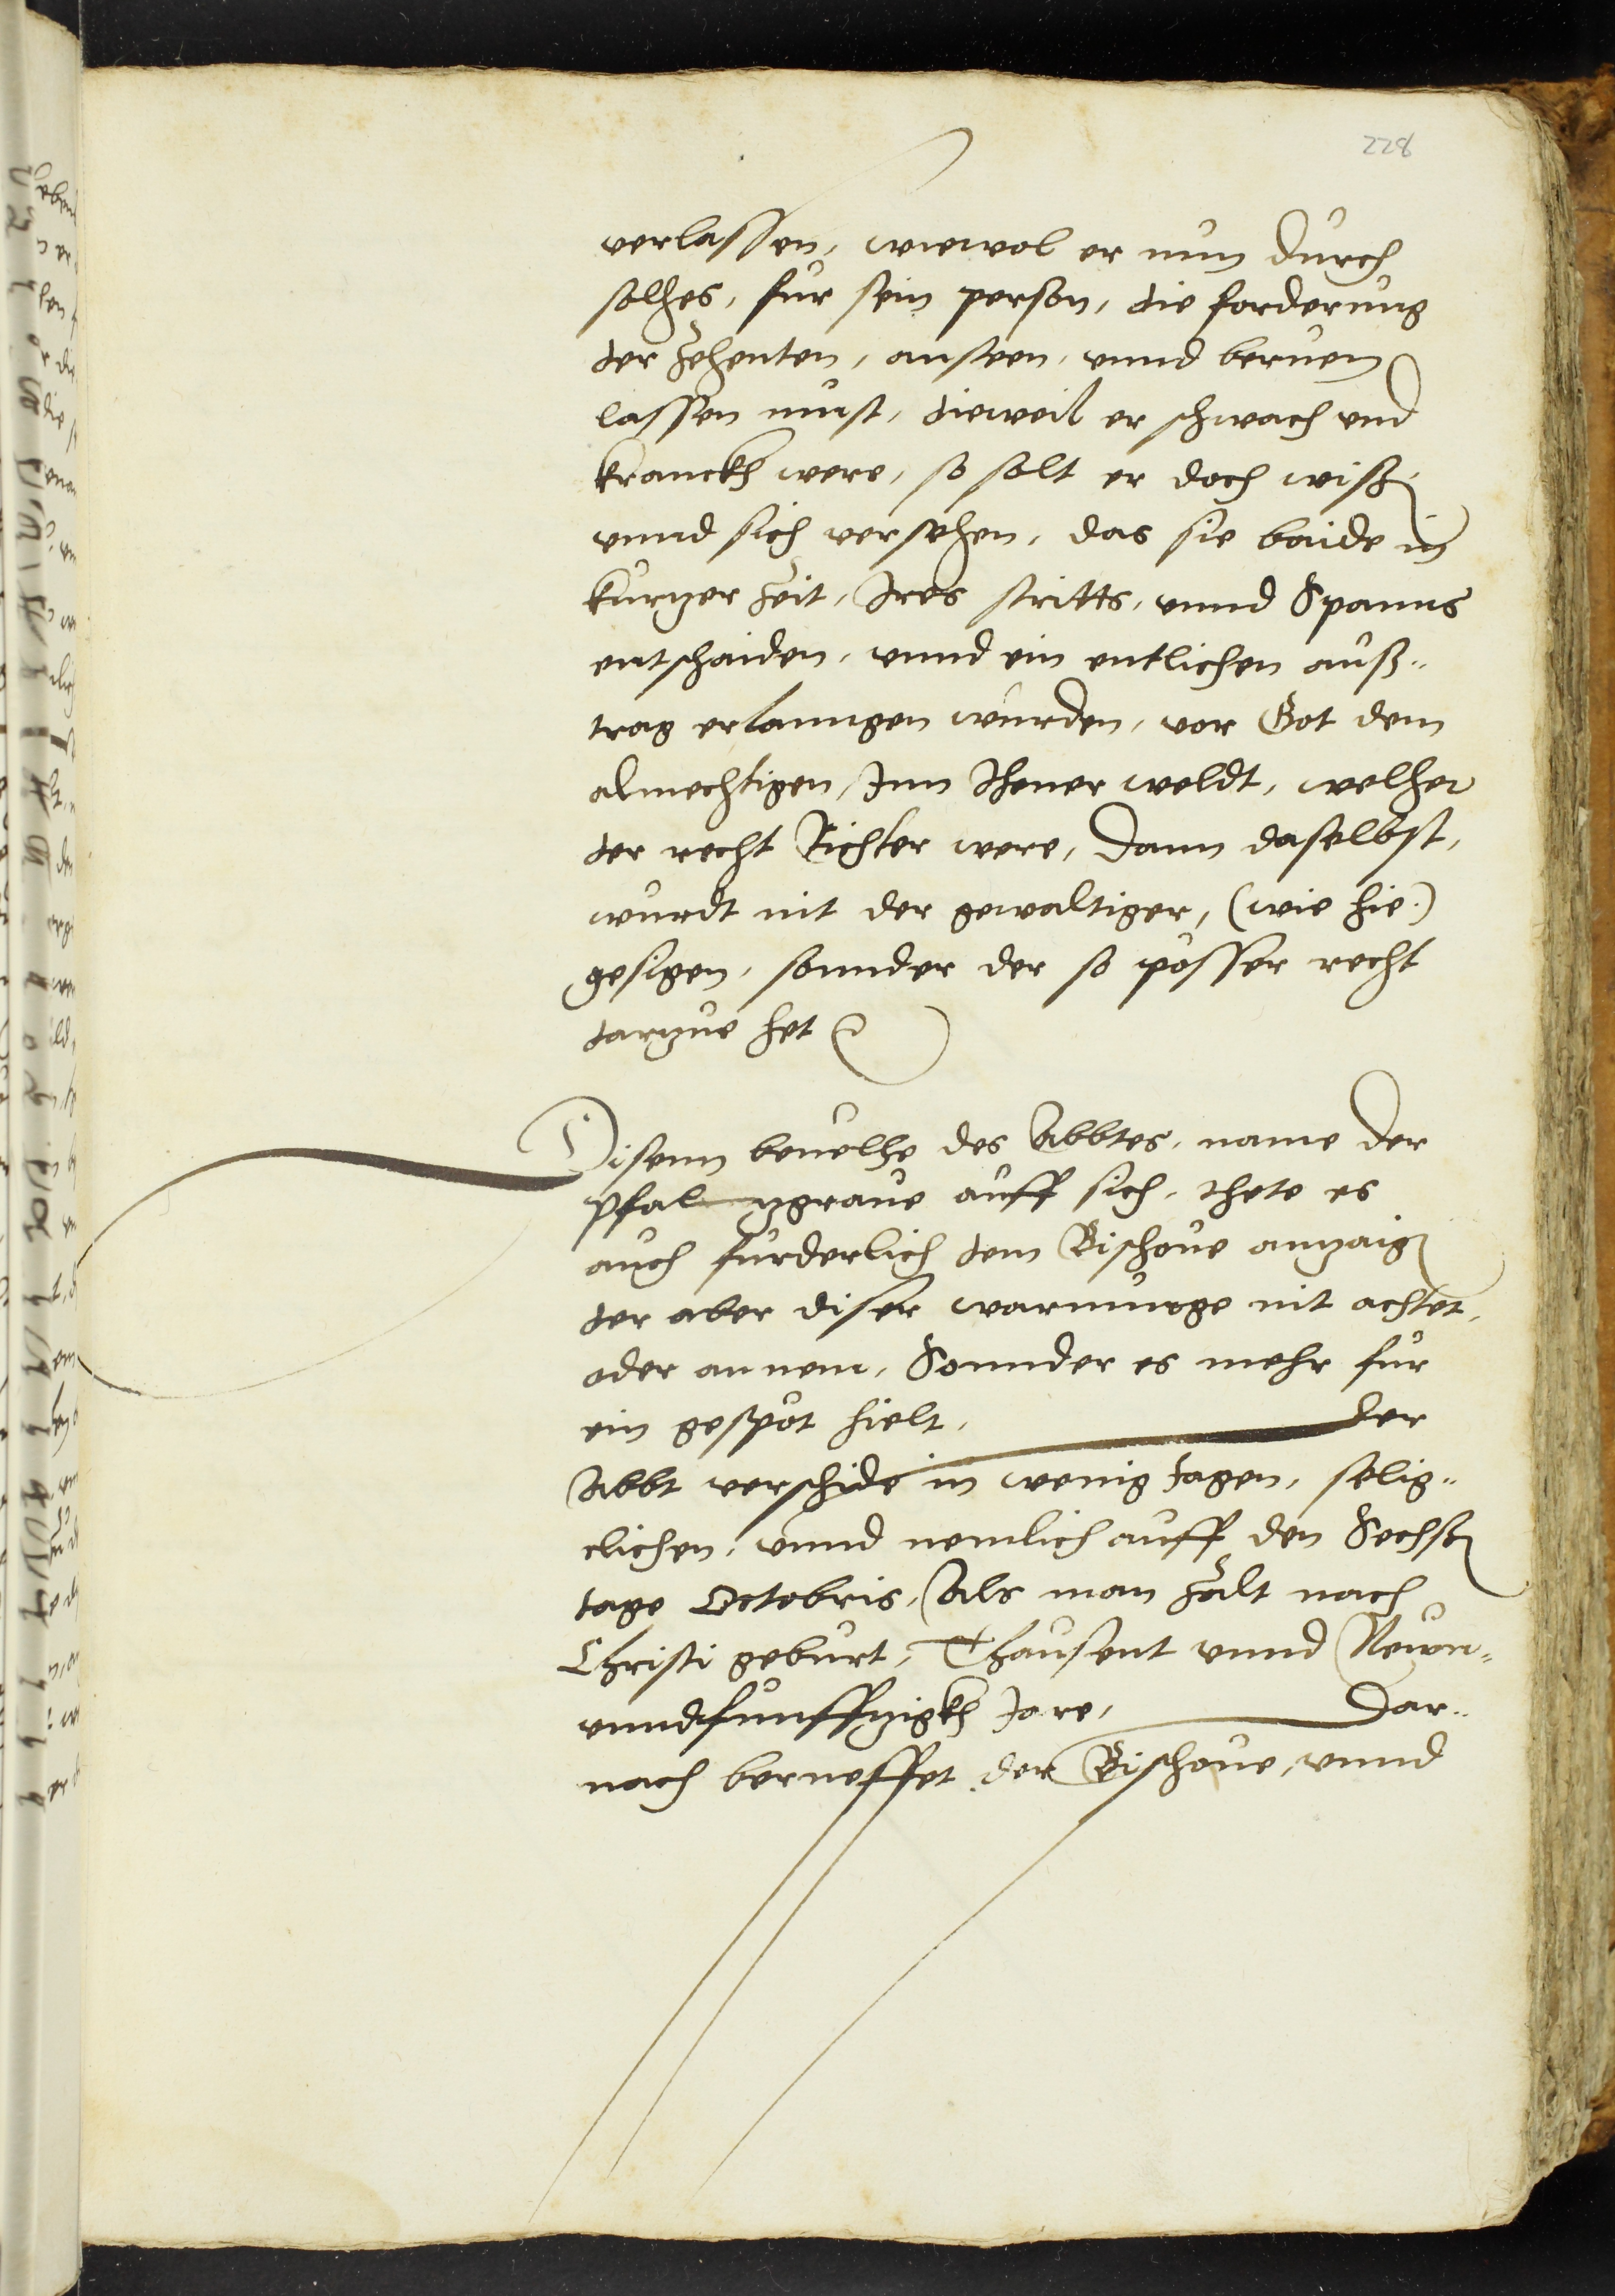 228
verlassen, wiewol er nun durch
solhes, fur sein person, die forderung
der zehenten, ansteen, vnnd beruen
lassen must, dieweil er schwach vnd
kranckh were, so solt er doch wissen,
vnnd sich versehen, das sie baide in
kurtzer zeit, Ires stritts, vnnd Spanns
entschaiden, vnnd ein entlichen auß-
trag erlanngen wurden, vor Got dem
almechtigen, Inn Jhener weldt, welher
der recht Richter were, Dann daselbst,
wurdt nit der gewaltiger, (wie hie.)
gesigen, sonnder der so posser recht
dartzue het
Disenn beuelhe des Abbtes, name der
Pfaltzgraue auff sich, thete es
auch furderlich dem Bischoue anzaigen
der aber diser warnunge nit achtet,
oder annem, Sonnder es mehr fur
ein gespöt hielt, Der
Abbt verschide in wenig tagen, selig-
clichen, vnnd nemlich auff den Sechsten
tage Octobris, Als man zalt nach
Christi geburt, Thausent vnnd Neun-
vnndfunfftzigkh Jare, Dar-
nach berueffet der Bischoue, vnnd